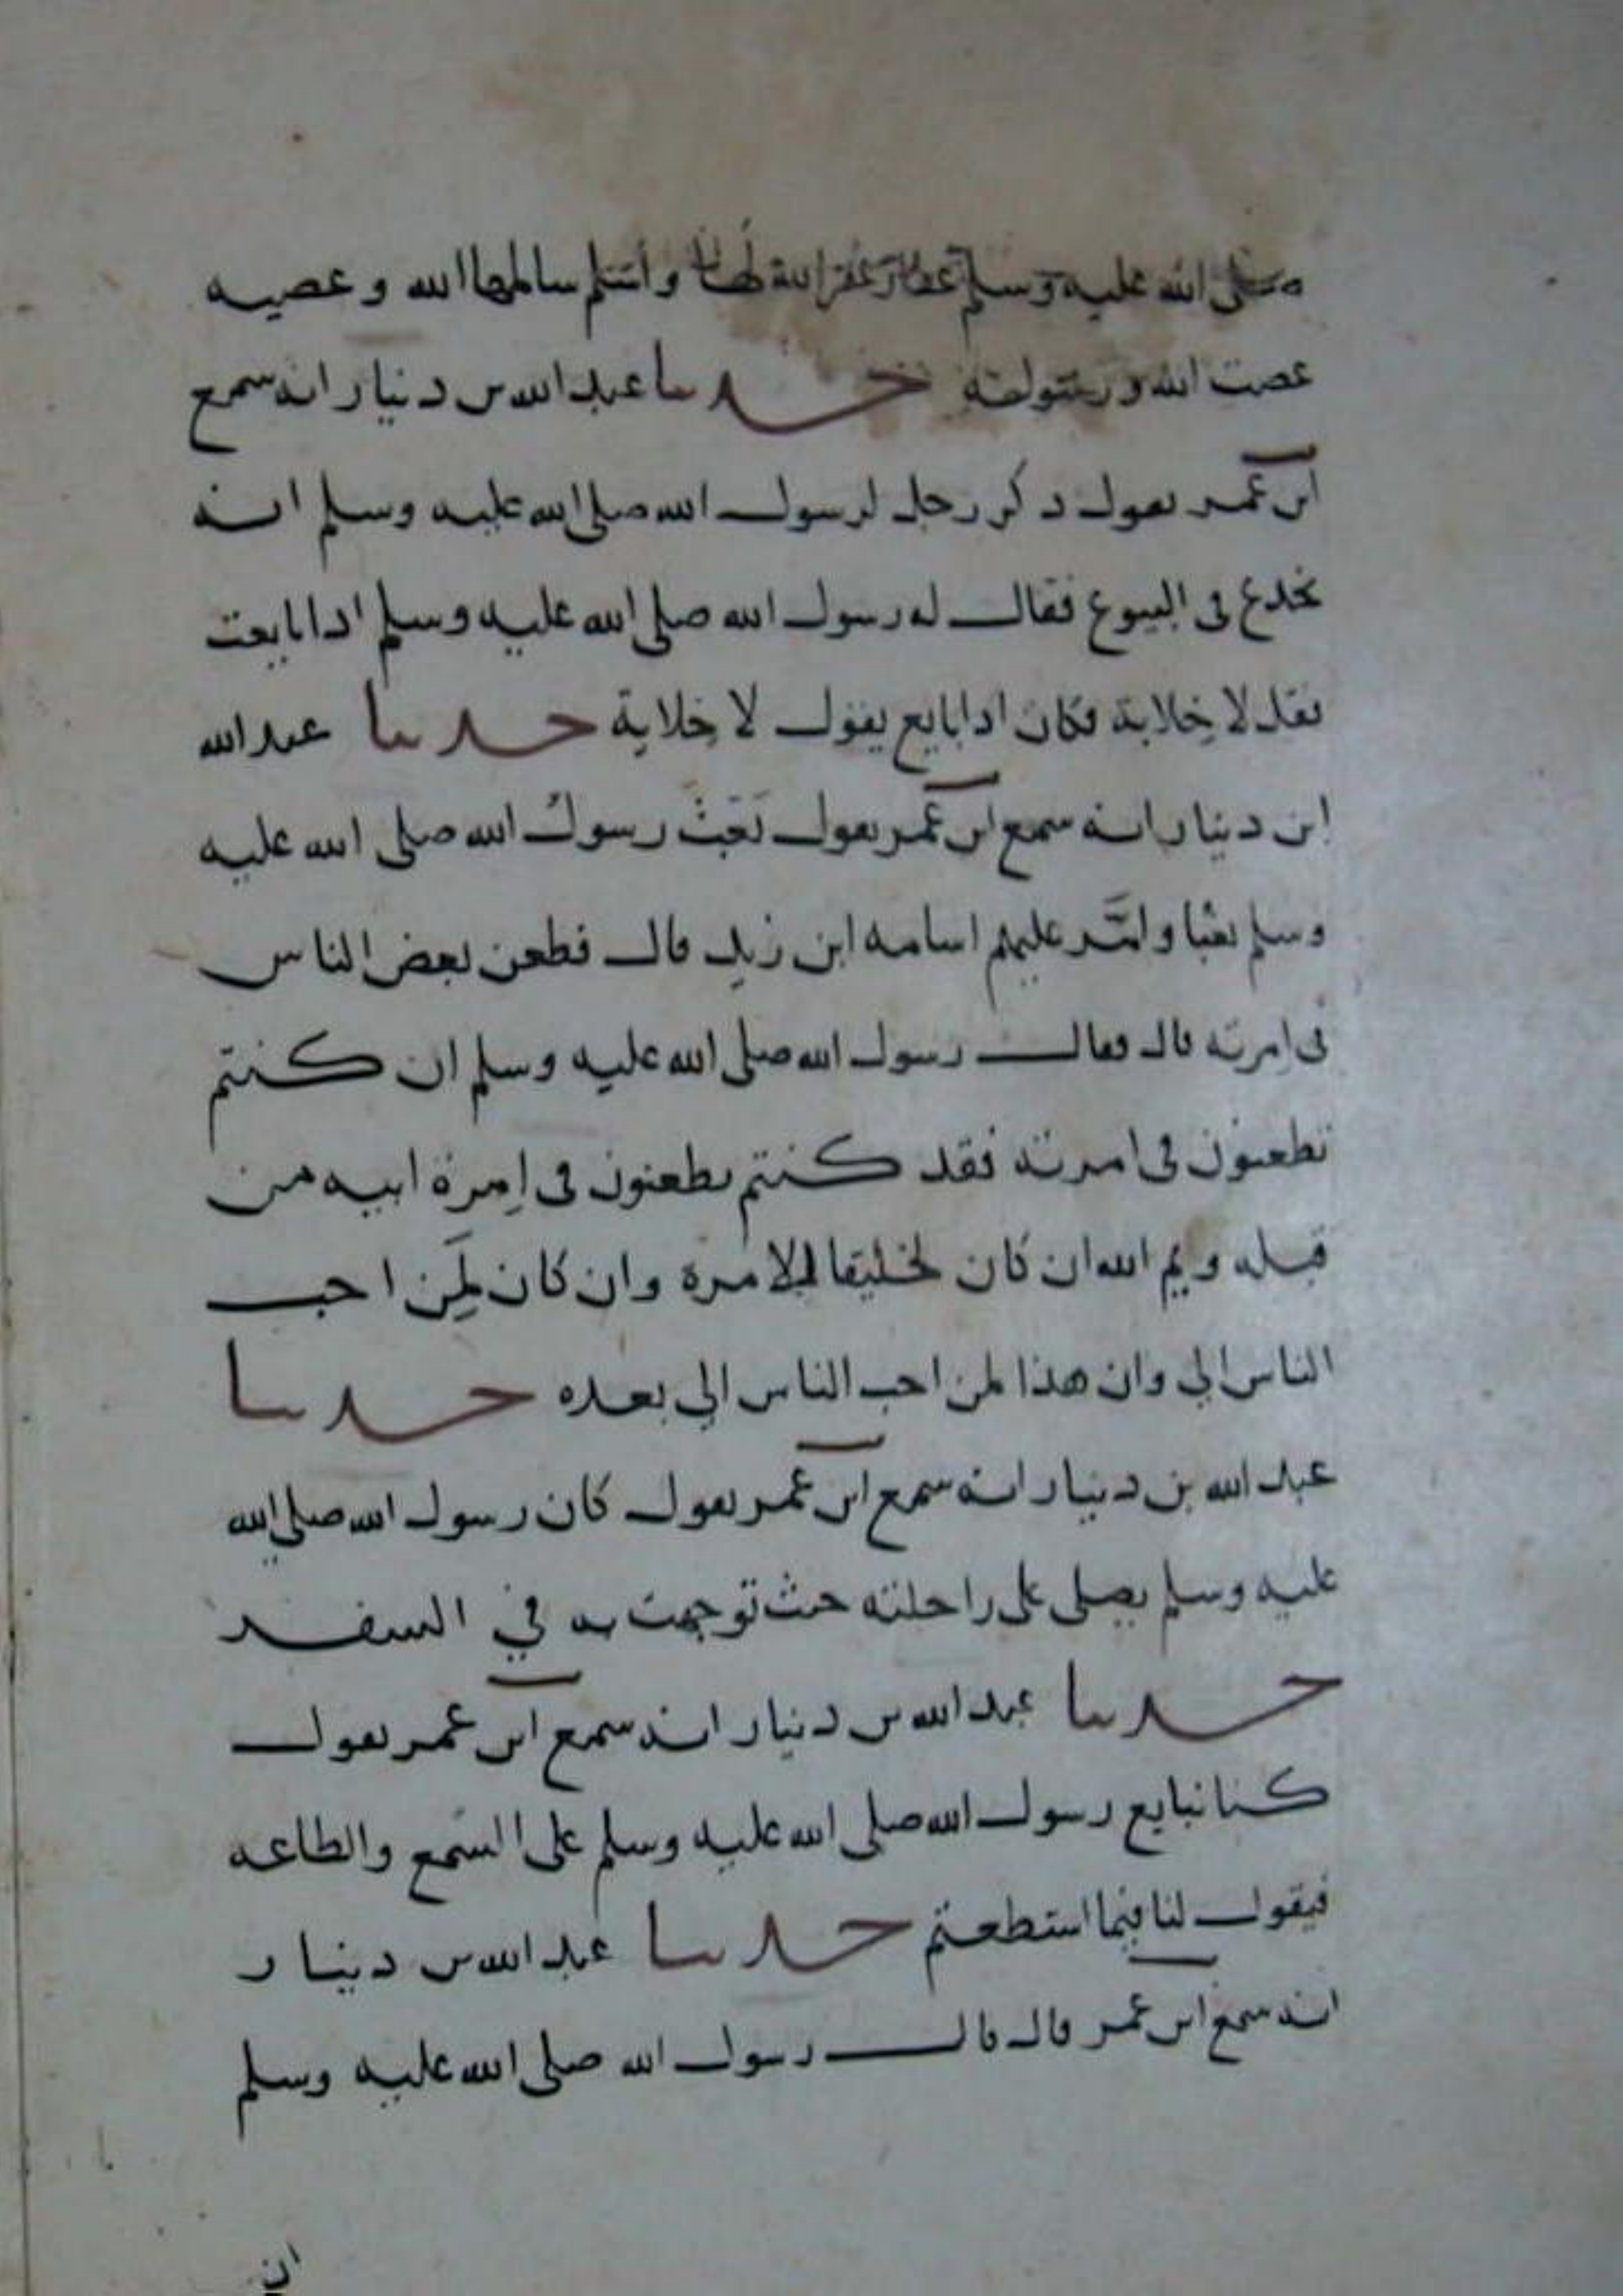 صلى الله عليه وسلم غفار غفر الله لها واسلم سالمها الله وعصيه
عصت الله ورسوله حدثنا عبد الله بن دينار انه سمع
ابن عمر يقول ذكر رجل لرسول الله صلى الله عليه وسلم انه
يخدع فى البيوع فقال له رسول الله صلى الله عليه وسلم اذا بايعت
فقل لا خلابة فكان اذا بايع يقول لا خِلابة حدثنا عبد الله
ابن دينار انه سمع ابن عمر يقول بَعَثَ رسولُ الله صلى الله عليه
وسلم بعثا وامَّر عليهم اسامه ابن زيد قال فطعن بعض الناس
فى امرته قال فقال رسول الله صلى الله عليه وسلم ان كنتم
تطعنون فى امرته فقد كنتم تطعنون فى اِمرة ابيه من
قبله ويم الله ان كان لخليقا للامرة وان كان لَمِن احب
الناس الي وان هذا لمن احب الناس الي بعده حدثنا
عبد الله بن دينار انه سمع ابن عمر يقول كان رسول الله صلى الله
عليه وسلم يصلى على راحلته حيث توجهت به في السفر
حدثنا عبد الله بن دينار انه سمع ابن عمر يقول
كنا نبايع رسول الله صلى الله عليه وسلم على السمع والطاعه
فيقول لنا فيما استطعتم حدثنا عبد الله بن دينار
انه سمع ابن عمر قال قال رسول الله صلى الله عليه وسلم
ان